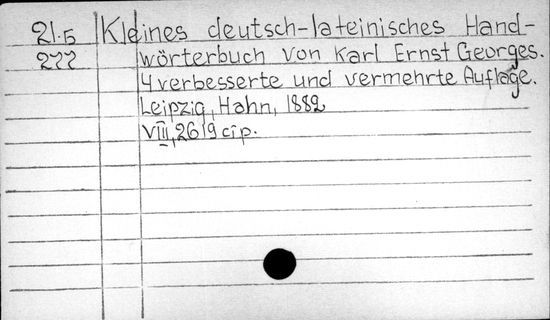 21.5 Kleines deutsch-lateinisches Hand-
277 wörterbuch von Karl Ernst Georges.
4 verbesserte und vermehrte Auflage.
Leipzig, Hahn, 1882
VIII, 2619 cīp.